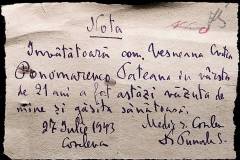 Nota
Învătătoară com. Vesneana
Ponomarenco Tateana în vârstă
de 21 ani a fost astăzi văzută de
mine și găsită sănătoasă.
27 Iulie 1943
Medic
Dr